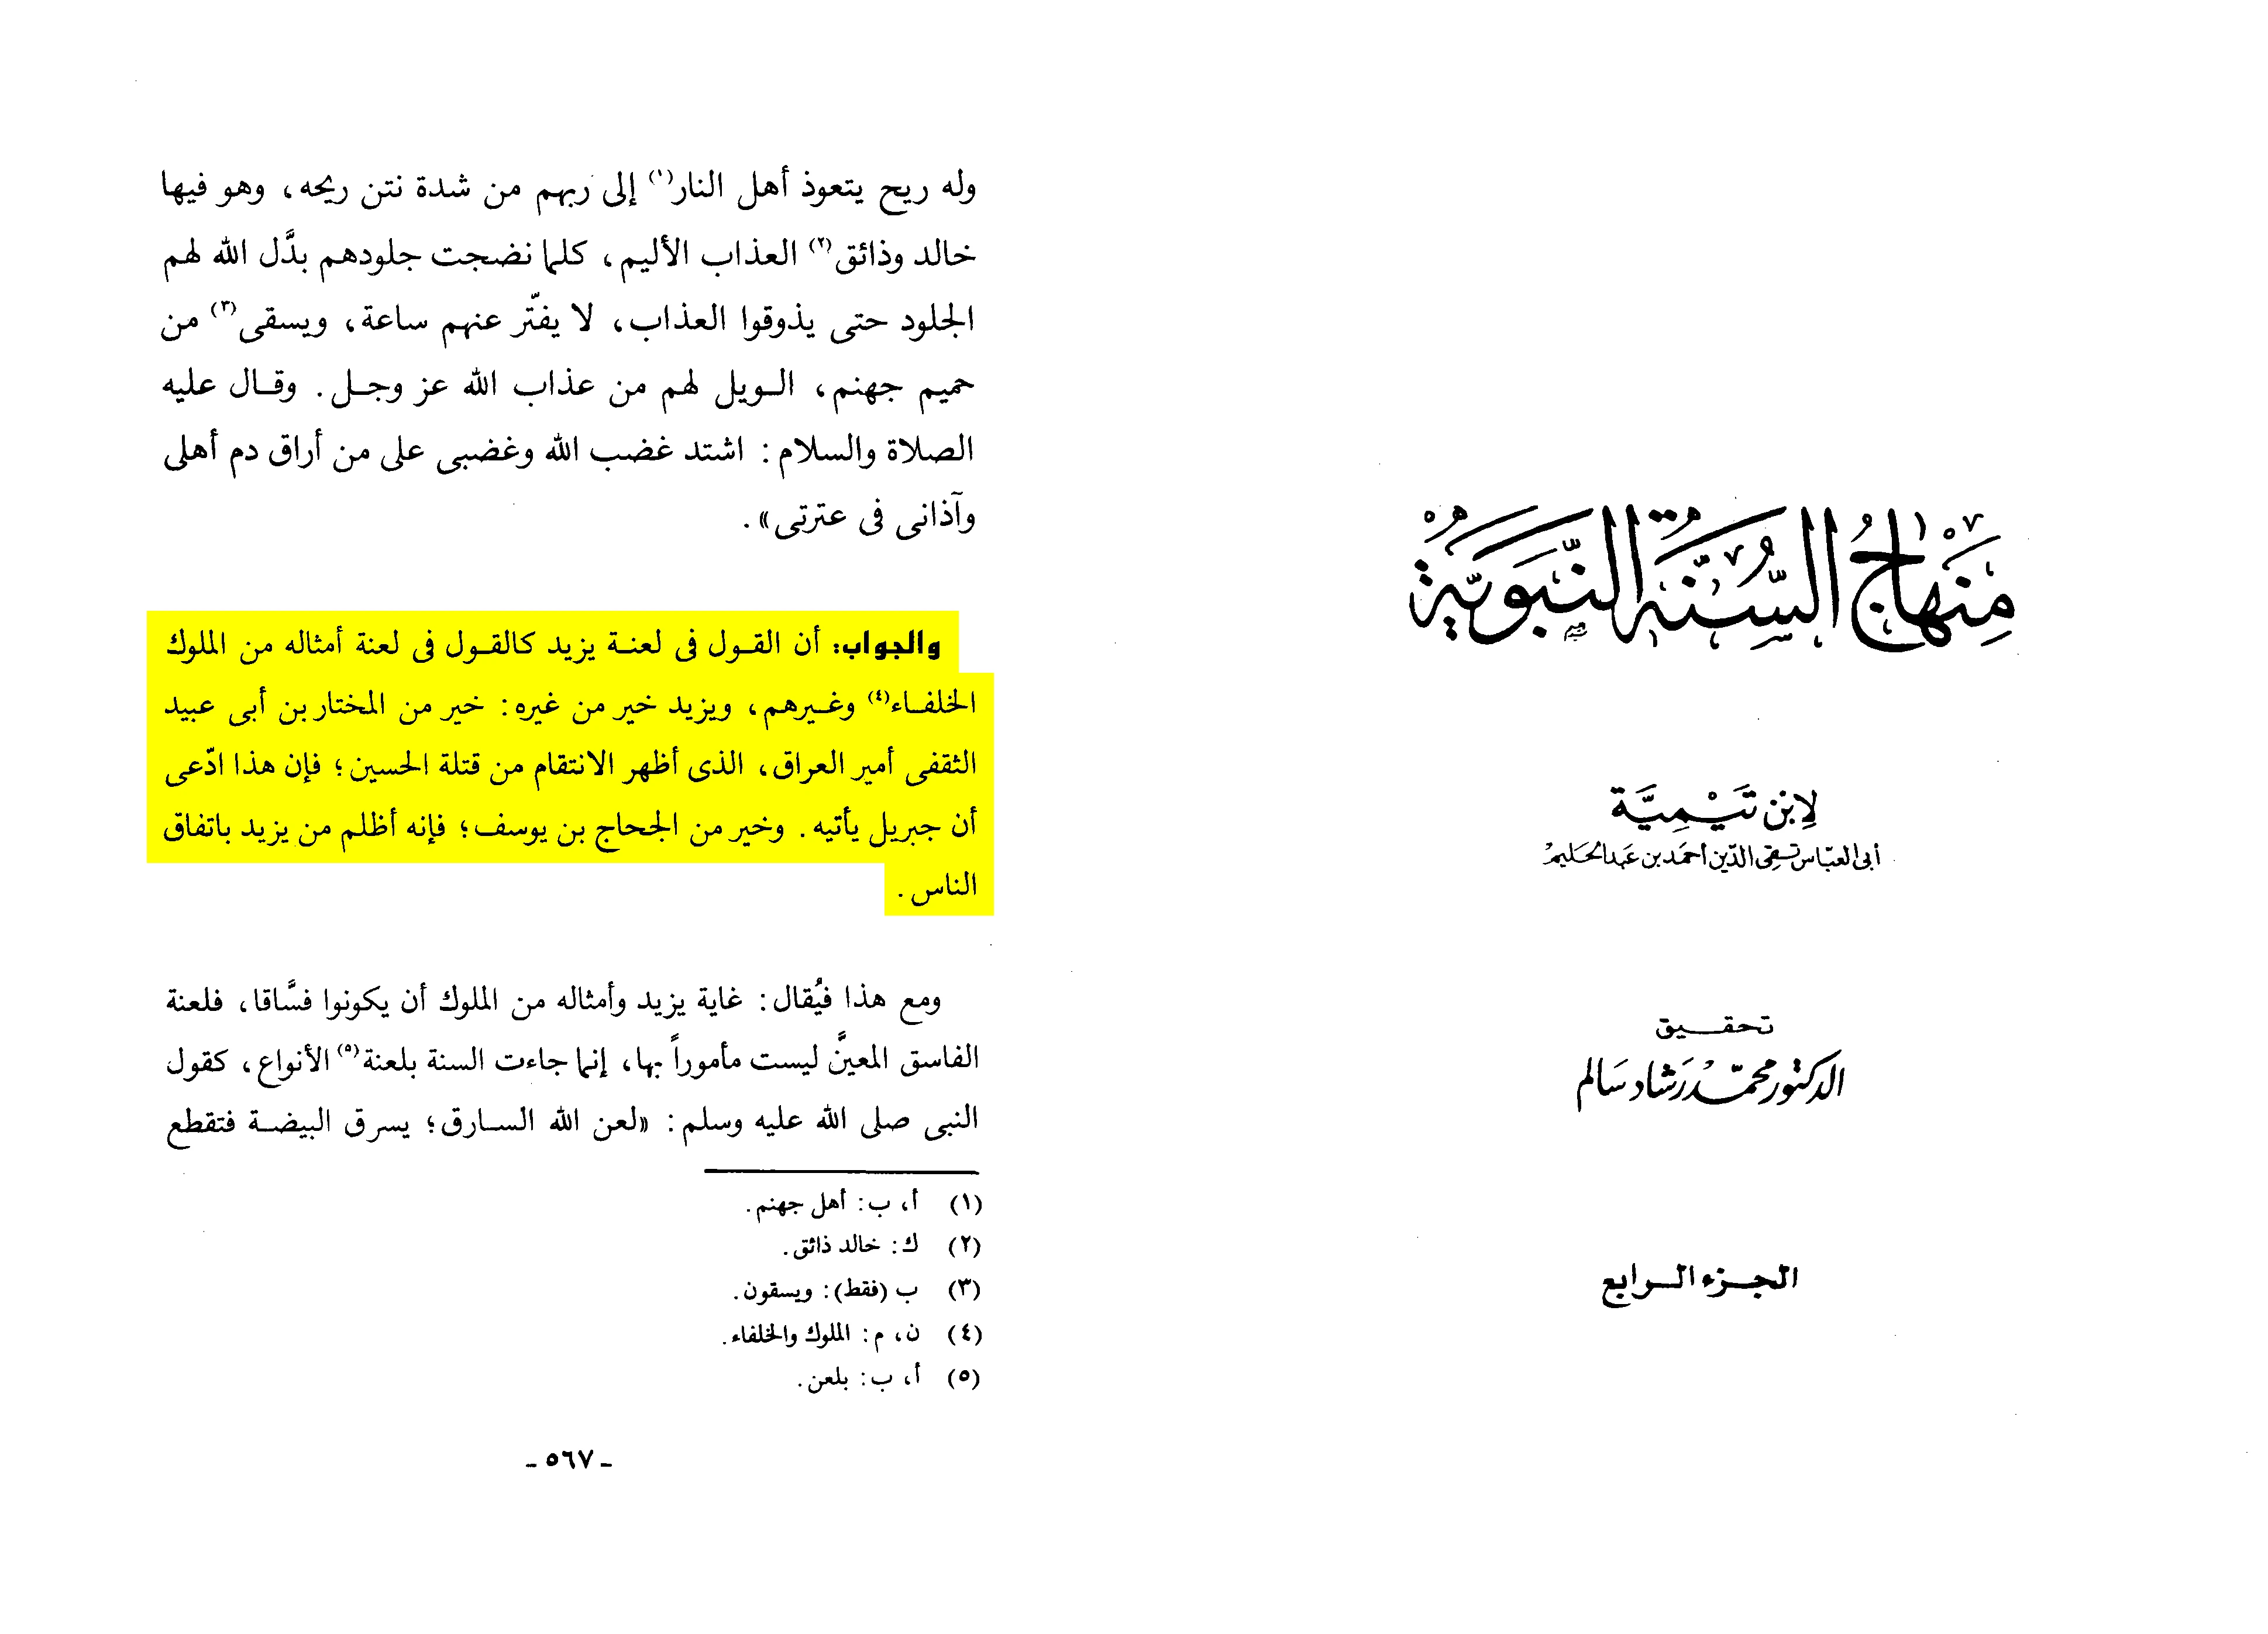 منهاج السنة النبوية
لابن تيمية
أبى العباس تقى الدين أحمد بن عبد الحليم
تحقيق
الدكتور محمد رشاد سالم
الجزء الرابع
وله ريح يتعوذ أهل النار(١) إلى ربهم من شدة نتن ريحه، وهو فيها
خالد وذائق(٢) العذاب الأليم، كلما نضجت جلودهم بدَّل الله لهم
الجلود حتى يذوقوا العذاب، لا يفتّر عنهم ساعة، ويسقى(٣) من
حميم جهنم، الويل لهم من عذاب الله عز وجل. وقال عليه
الصلاة والسلام: اشتد غضب الله وغضبى على من أراق دم أهلى
وآذانى فى عترتى».
والجواب: أن القول فى لعنة يزيد كالقول فى لعنة أمثاله من الملوك
الخلفاء(٤) وغيرهم، ويزيد خير من غيره: خير من المختار بن أبى عبيد
الثقفى أمير العراق، الذى أظهر الانتقام من قتلة الحسين؛ فإن هذا ادّعى
أن جبريل يأتيه. وخير من الحجاج بن يوسف؛ فإنه أظلم من يزيد باتفاق
الناس.
ومع هذا فيُقال: غاية يزيد وأمثاله من الملوك أن يكونوا فسَّاقا، فلعنة
الفاسق المعينَّ ليست مأموراً بها، إنما جاءت السنة بلعنة(٥) الأنواع، كقول
النبى صلى الله عليه وسلم: «لعن الله السارق؛ يسرق البيضة فتقطع
(١) أ، ب: أهل جهنم.
(٢) ك: خالد ذائق.
(٣) ب (فقط): ويسقون.
(٤) ن، م: الملوك والخلفاء.
(٥) أ، ب: بلعن.
- ٥٦٧ -